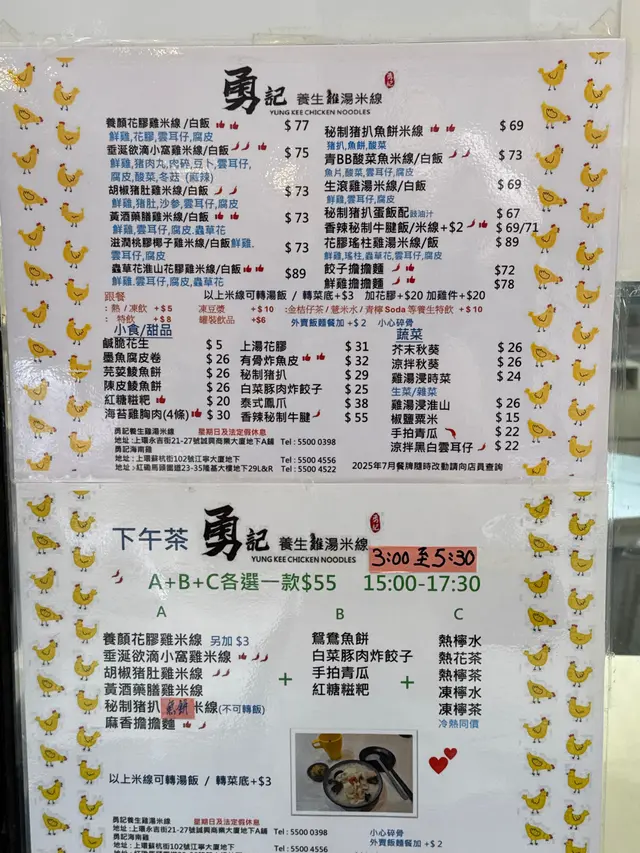 勇記 養生雞湯米線
YUNG KEE CHICKEN NOODLES
養顏花膠雞米線/白飯 $ 77
鮮雞,花膠,雲耳仔,腐皮
垂涎欲滴小窩雞米線/白飯 $ 75
鮮雞,豬肉丸,肉碎,豆卜,雲耳仔,
腐皮,酸菜,冬菇 (麻辣)
胡椒豬肚雞米線/白飯 $ 73
鮮雞,豬肚,沙參,雲耳仔,腐皮
黃酒藥膳雞米線/白飯 $ 73
鮮雞,雲耳仔.腐皮.蟲草花
滋潤桃膠椰子雞米線/白飯 鮮雞. $ 73
雲耳仔,腐皮
蟲草花淮山花膠雞米線/白飯 $89
鮮雞,雲耳仔,腐皮,蟲草花
秘制豬扒魚餅米線 $ 69
豬扒,魚餅,酸菜
青BB酸菜魚米線/白飯 $ 73
魚片,酸菜,雲耳仔,腐皮
生滾雞湯米線/白飯 $ 69
鮮雞,雲耳仔,腐皮
秘制豬扒蛋飯配豉油汁 $ 67
香辣秘制牛腱飯/米線+$2 $ 69/71
花膠瑤柱雞湯米線/飯 $ 89
鮮雞,瑤柱,蟲草花,雲耳仔,腐皮
餃子擔擔麵 $72
鮮雞擔擔麵 $78
跟餐 以上米線可轉湯飯 / 轉菜底+$3 加花膠+$20 加雞件+$20
: 熱 / 凍飲 + $ 5 凍豆漿 + $ 10 :金桔仔茶 / 薏米水 / 青檸 Soda 等養生特飲 + $ 10
: 特飲 + $ 8 罐裝飲品 +$6 外賣飯麵餐加 + $ 2 小心碎骨
小食/甜品
鹹脆花生 $ 5
墨魚腐皮卷 $ 26
芫荽鯪魚餅 $ 26
陳皮鯪魚餅 $ 26
紅糖糍粑 $ 20
海苔雞胸肉(4條) $ 30
上湯花膠 $ 31
有骨炸魚皮 $ 32
秘制豬扒 $ 29
白菜豚肉炸餃子 $ 25
泰式鳳爪 $ 38
香辣秘制牛腱 $ 55
蔬菜
芥末秋葵 $ 26
涼拌秋葵 $ 26
雞湯浸時菜 $ 24
生菜/雜菜
雞湯浸淮山 $ 26
椒鹽粟米 $ 15
手拍青瓜 $ 22
涼拌黑白雲耳仔 $ 22
勇記養生雞湯米線 星期日及法定假休息
地址 : 上環永吉街21-27號誠興商業大廈地下A鋪 Tel : 5500 0398
勇記海南雞
地址 : 上環蘇杭街102號江寧大廈地下 Tel : 5500 4556
地址 : 紅磡馬頭圍道23-35隆基大樓地下29L&R Tel : 5500 4522
2025年7月餐牌隨時改動請向店員查詢
下午茶 勇記 養生雞湯米線
YUNG KEE CHICKEN NOODLES
3:00 至 5:30
A+B+C各選一款$55 15:00-17:30
A B C
養顏花膠雞米線 另加 $3
垂涎欲滴小窩雞米線
胡椒豬肚雞米線
黃酒藥膳雞米線
秘制豬扒魚餅米線(不可轉飯)
麻香擔擔麵
+
鴛鴦魚餅
白菜豚肉炸餃子
手拍青瓜
紅糖糍粑
+
熱檸水
熱花茶
熱檸茶
凍檸水
凍檸茶
冷熱同價
以上米線可轉湯飯 / 轉菜底+$3
勇記養生雞湯米線 星期日及法定假休息
地址 : 上環永吉街21-27號誠興商業大廈地下A鋪 Tel : 5500 0398
勇記海南雞
地址 : 上環蘇杭街102號江寧大廈地下 Tel : 5500 4556
小心碎骨
外賣飯麵餐加 + $ 2